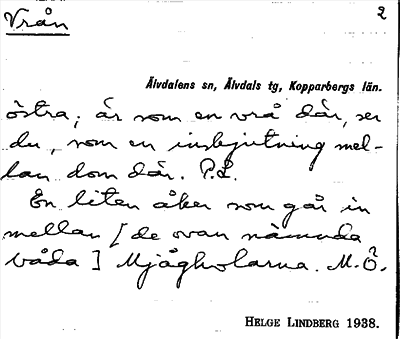 Vrån 2
Älvdalens sn, Älvdals tg, Kopparbergs län.
östra; är som en vrå där, ser
du, som en inskjutning mel-
lan dom där. P.L.
En liten åker som går in
mellan [de ovan nämnda
båda] Mjågholarna. M.Ö.
HELGE LINDBERG 1938.